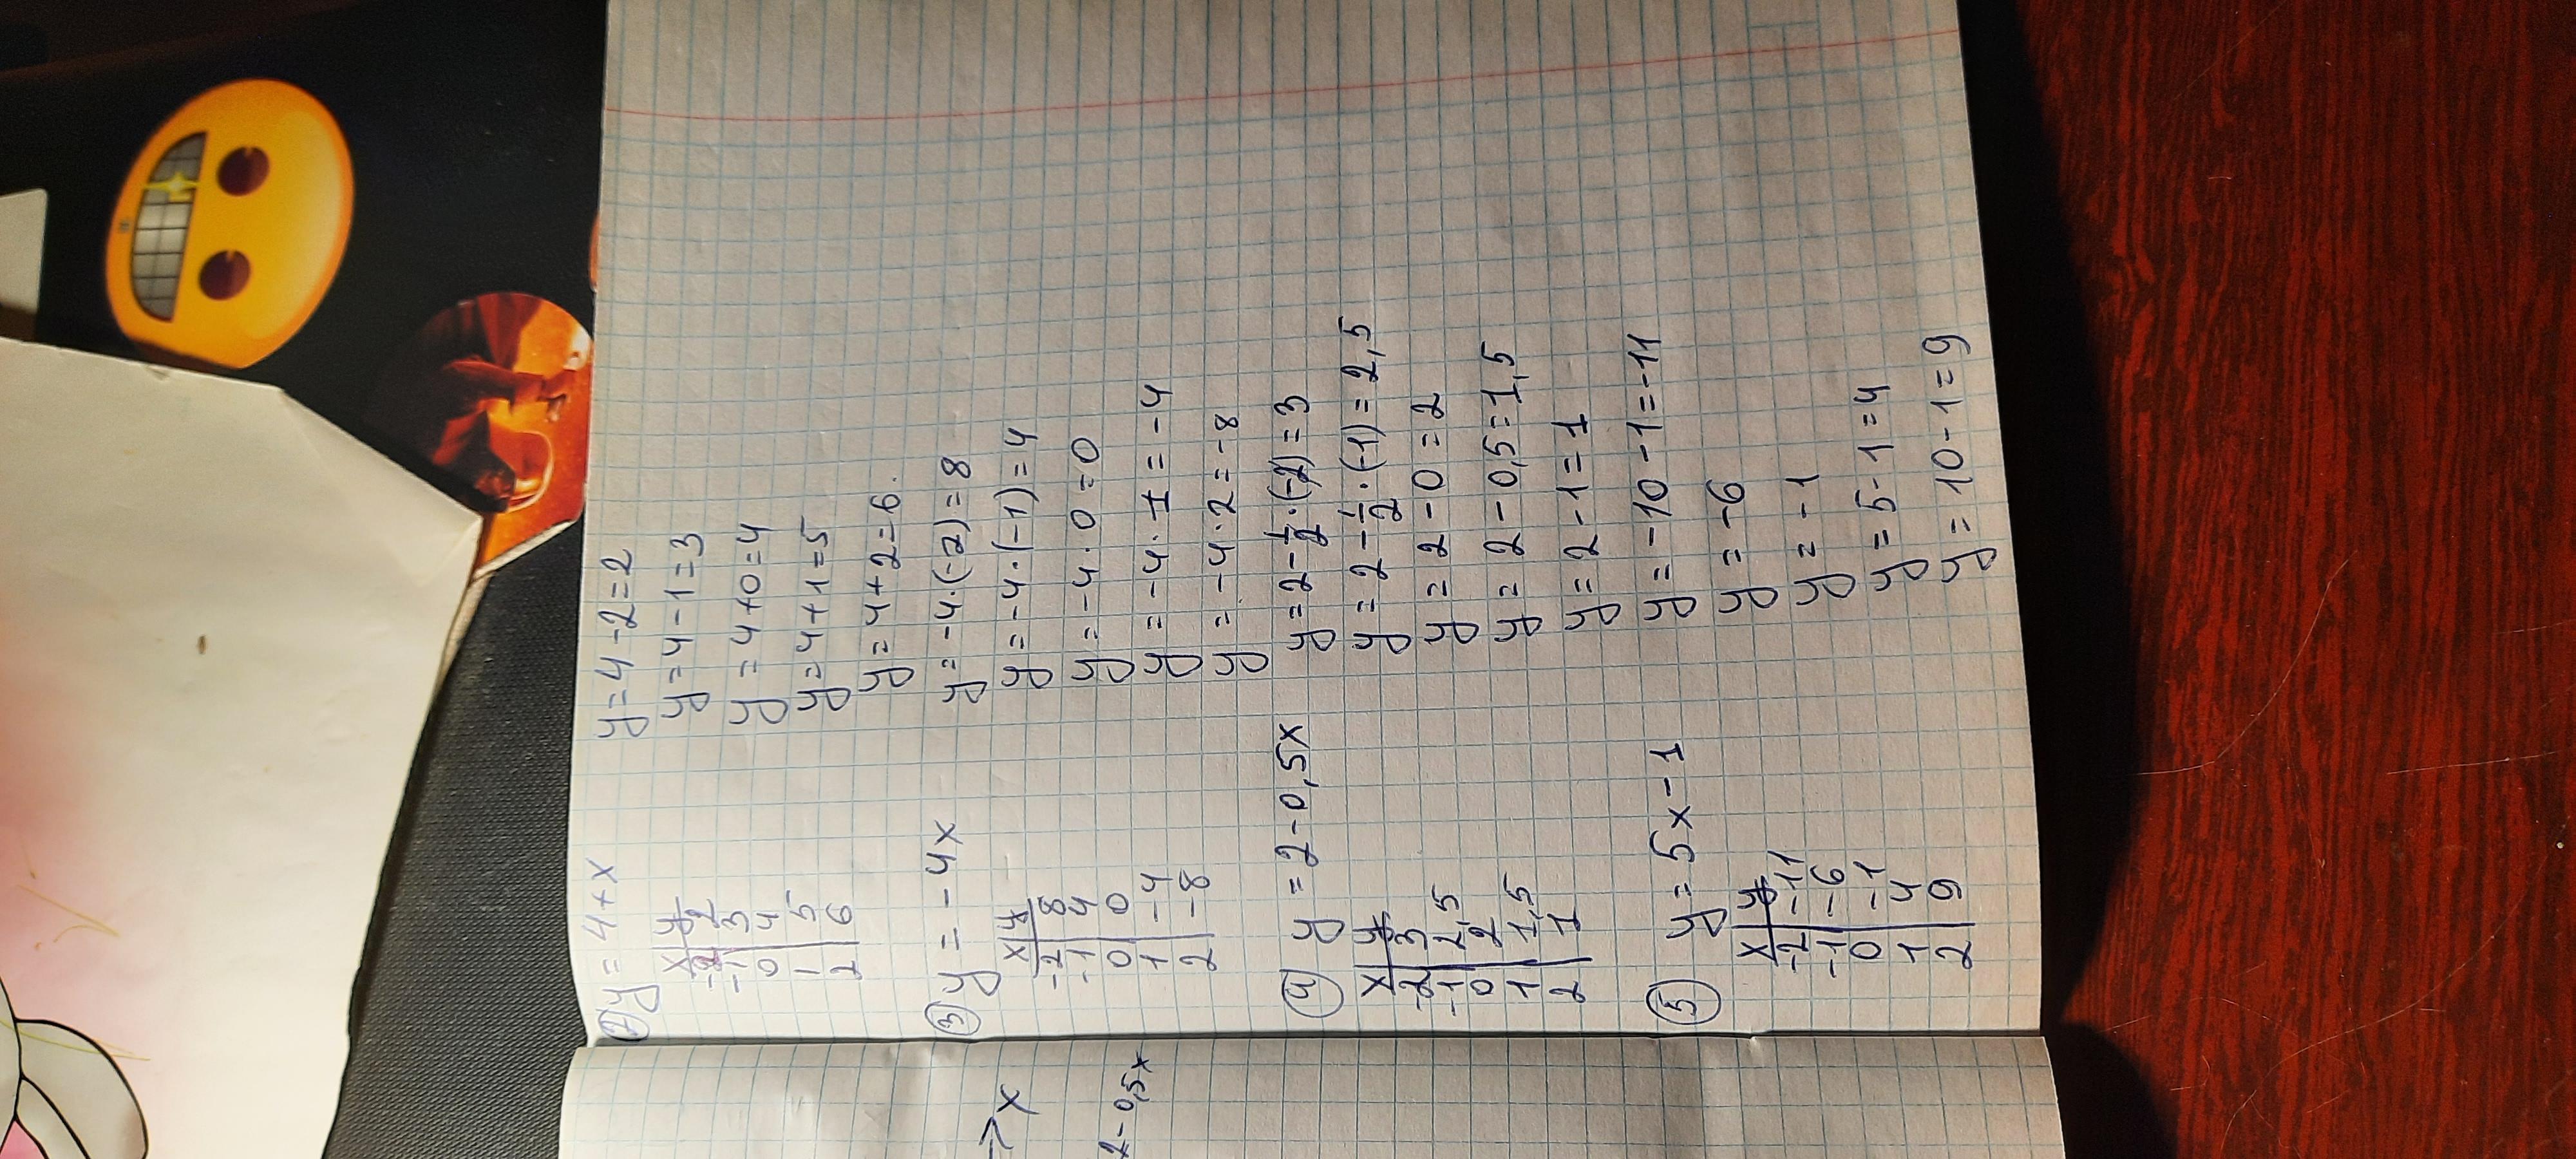 2) y = 4 + x
x | y
-2 | 2
-1 | 3
0 | 4
1 | 5
2 | 6
y = 4 - 2 = 2
y = 4 - 1 = 3
y = 4 + 0 = 4
y = 4 + 1 = 5
y = 4 + 2 = 6.
3) y = - 4x
x | y
-2 | 8
-1 | 4
0 | 0
1 | -4
2 | -8
y = -4 · (-2) = 8
y = -4 · (-1) = 4
y = -4 · 0 = 0
y = -4 · 1 = -4
y = -4 · 2 = -8
4) y = 2 - 0,5x
x | y
-2 | 3
-1 | 2,5
0 | 2
1 | 1,5
2 | 1
y = 2 - 1/2 · (-2) = 3
y = 2 - 1/2 · (-1) = 2,5
y = 2 - 0 = 2
y = 2 - 0,5 = 1,5
y = 2 - 1 = 1
5) y = 5x - 1
x | y
-2 | -11
-1 | -6
0 | -1
1 | 4
2 | 9
y = -10 - 1 = -11
y = -6
y = -1
y = 5 - 1 = 4
y = 10 - 1 = 9
x
2 - 0,5x